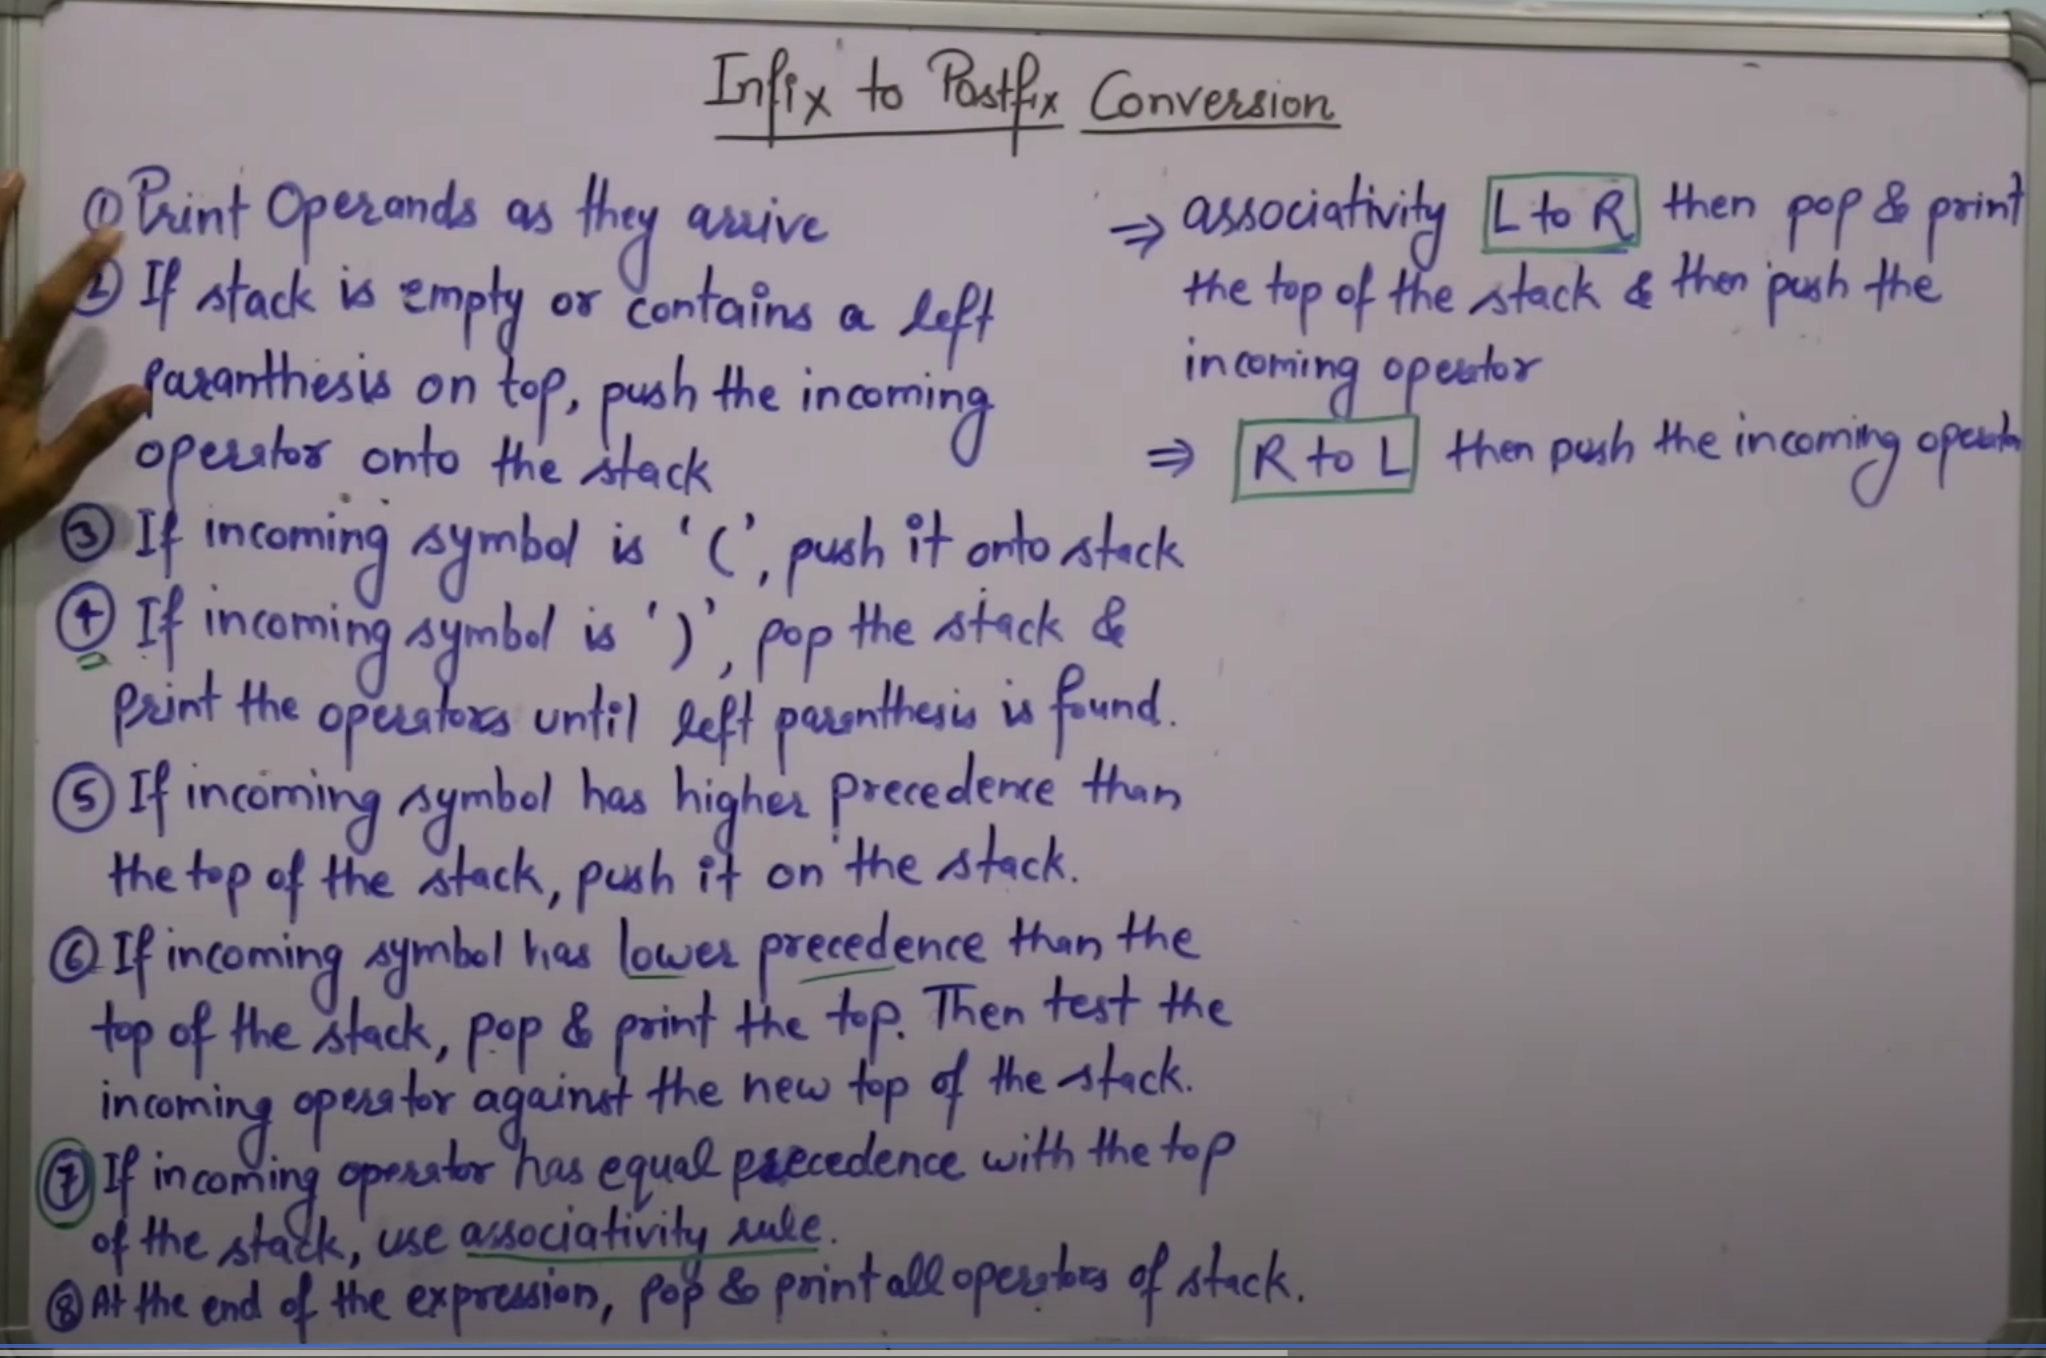 Infix to Postfix Conversion
① Print Operands as they arrive
② If stack is empty or contains a left
paranthesis on top, push the incoming
operator onto the stack
③ If incoming symbol is '(', push it onto stack
④ If incoming symbol is ')', pop the stack &
print the operators until left parenthesis is found.
⑤ If incoming symbol has higher precedence than
the top of the stack, push it on the stack.
⑥ If incoming symbol has lower precedence than the
top of the stack, pop & print the top. Then test the
incoming operator against the new top of the stack.
⑦ If incoming operator has equal precedence with the top
of the stack, use associativity rule.
⑧ At the end of the expression, pop & print all operators of stack.
⇒ associativity L to R then pop & print
the top of the stack & then push the
incoming operator
⇒ R to L then push the incoming operator